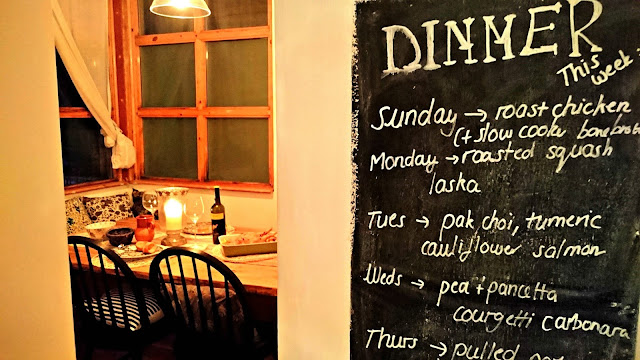 DINNER
This week:
Sunday → roast chicken
(+ slow cooker bonebroth
Monday → roasted squash
laska
Tues → pak choi, tumeric
cauliflower salmon
Weds → pea + pancetta
courgetti carbonara
Thurs → pulled